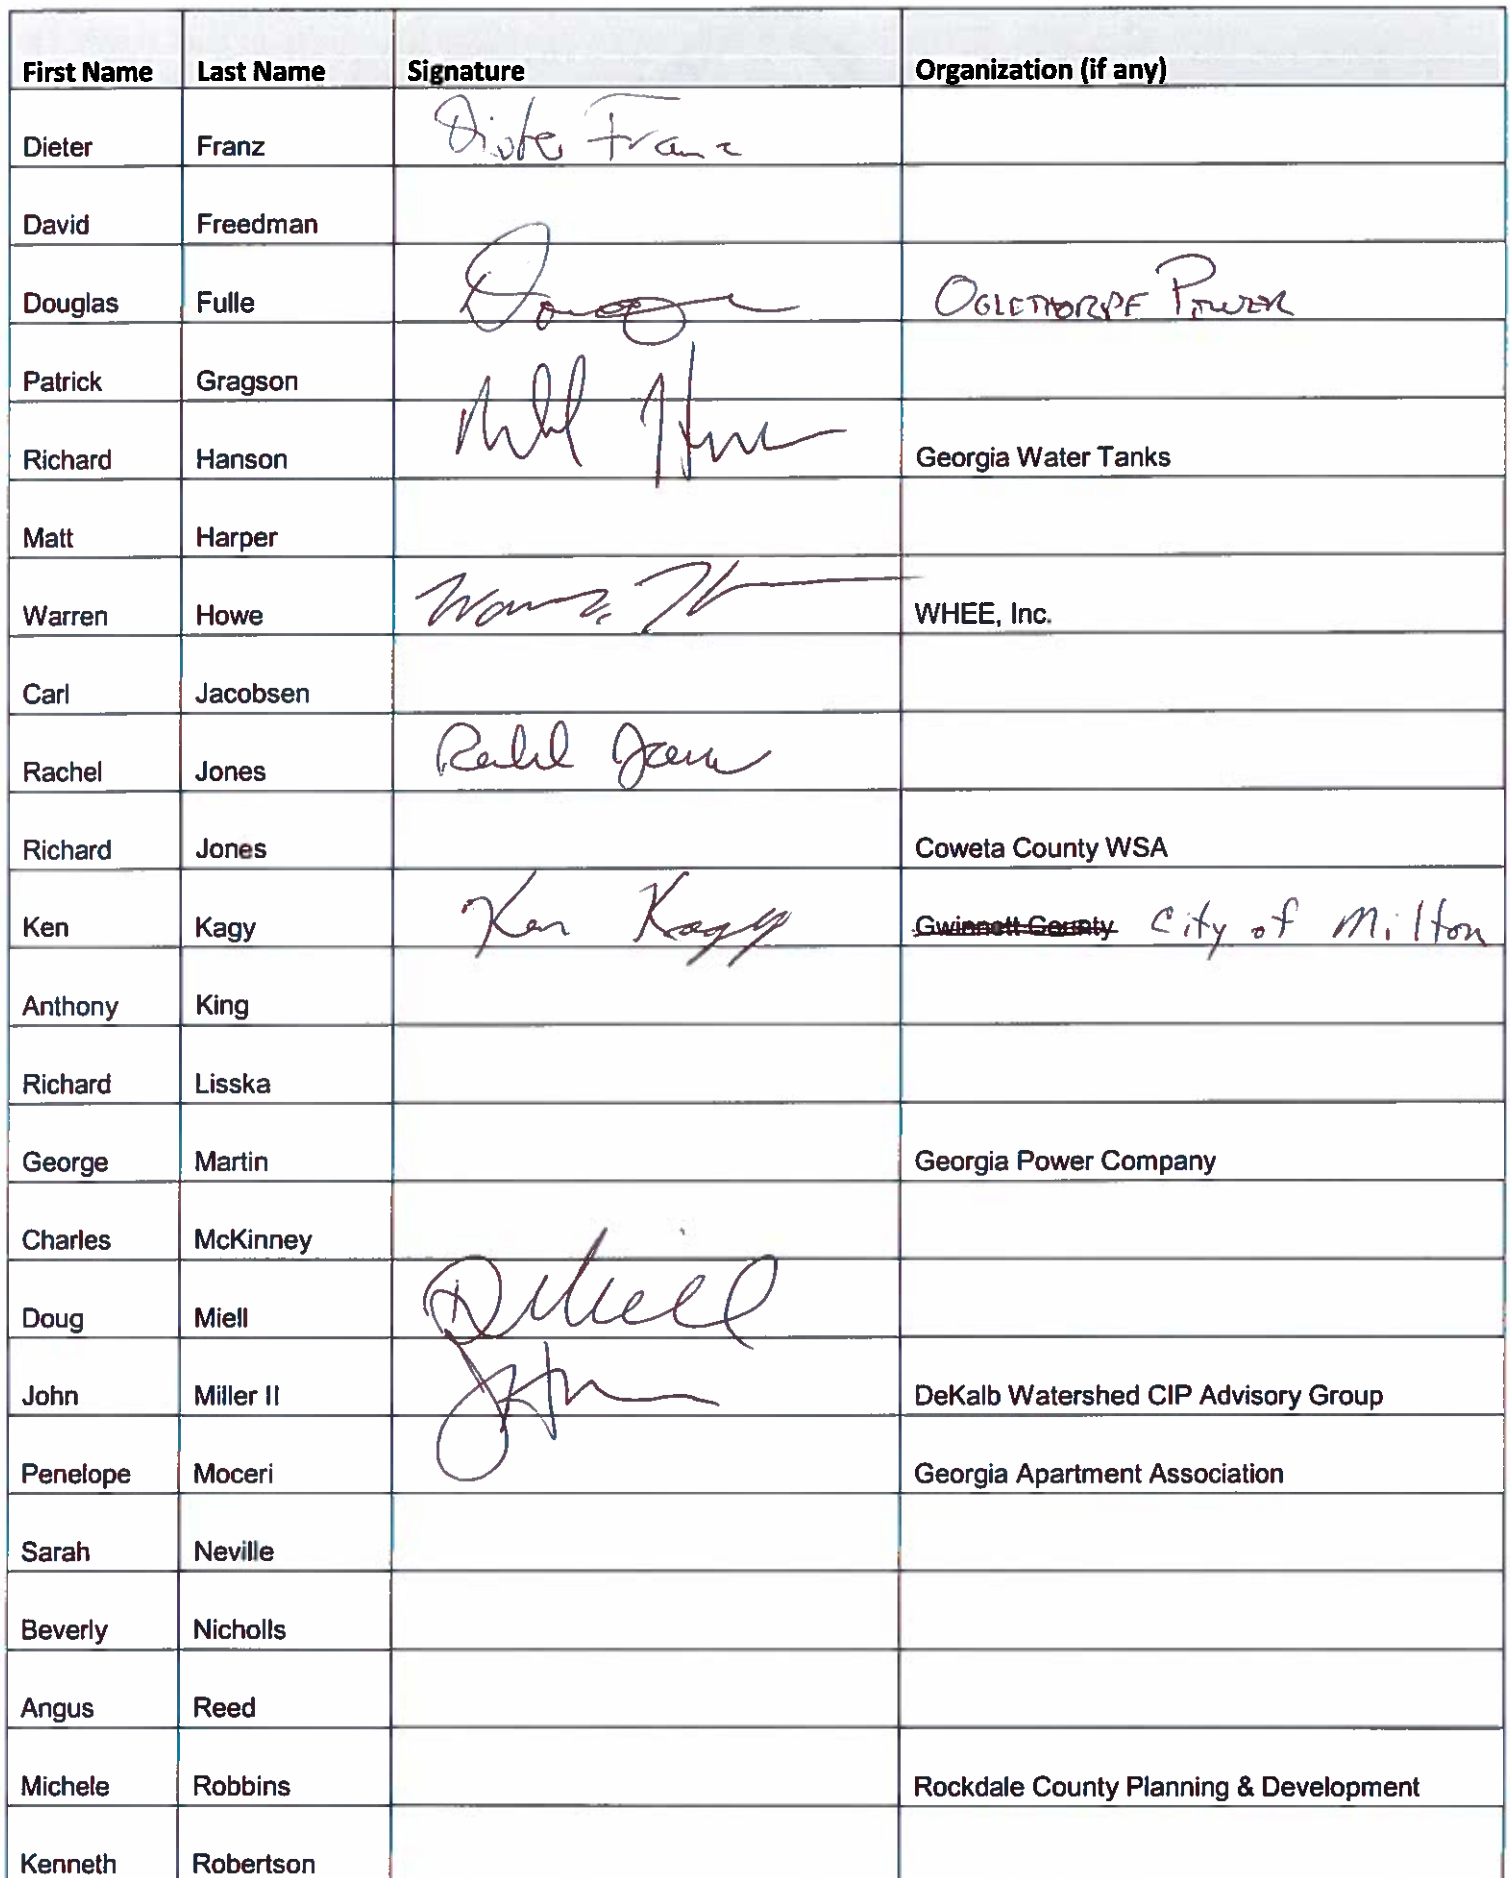 First Name Last Name Signature Organization (if any)
Dieter Franz Dieter Franz
David Freedman
Douglas Fulle OGLETHORPE POWER
Patrick Gragson
Richard Hanson Georgia Water Tanks
Matt Harper
Warren Howe WHEE, Inc.
Carl Jacobsen
Rachel Jones
Richard Jones Coweta County WSA
Ken Kagy Ken Kagy Gwinnett County City of Milton
Anthony King
Richard Lisska
George Martin Georgia Power Company
Charles McKinney
Doug Miell DMiell
John Miller II DeKalb Watershed CIP Advisory Group
Penelope Moceri Georgia Apartment Association
Sarah Neville
Beverly Nicholls
Angus Reed
Michele Robbins Rockdale County Planning & Development
Kenneth Robertson